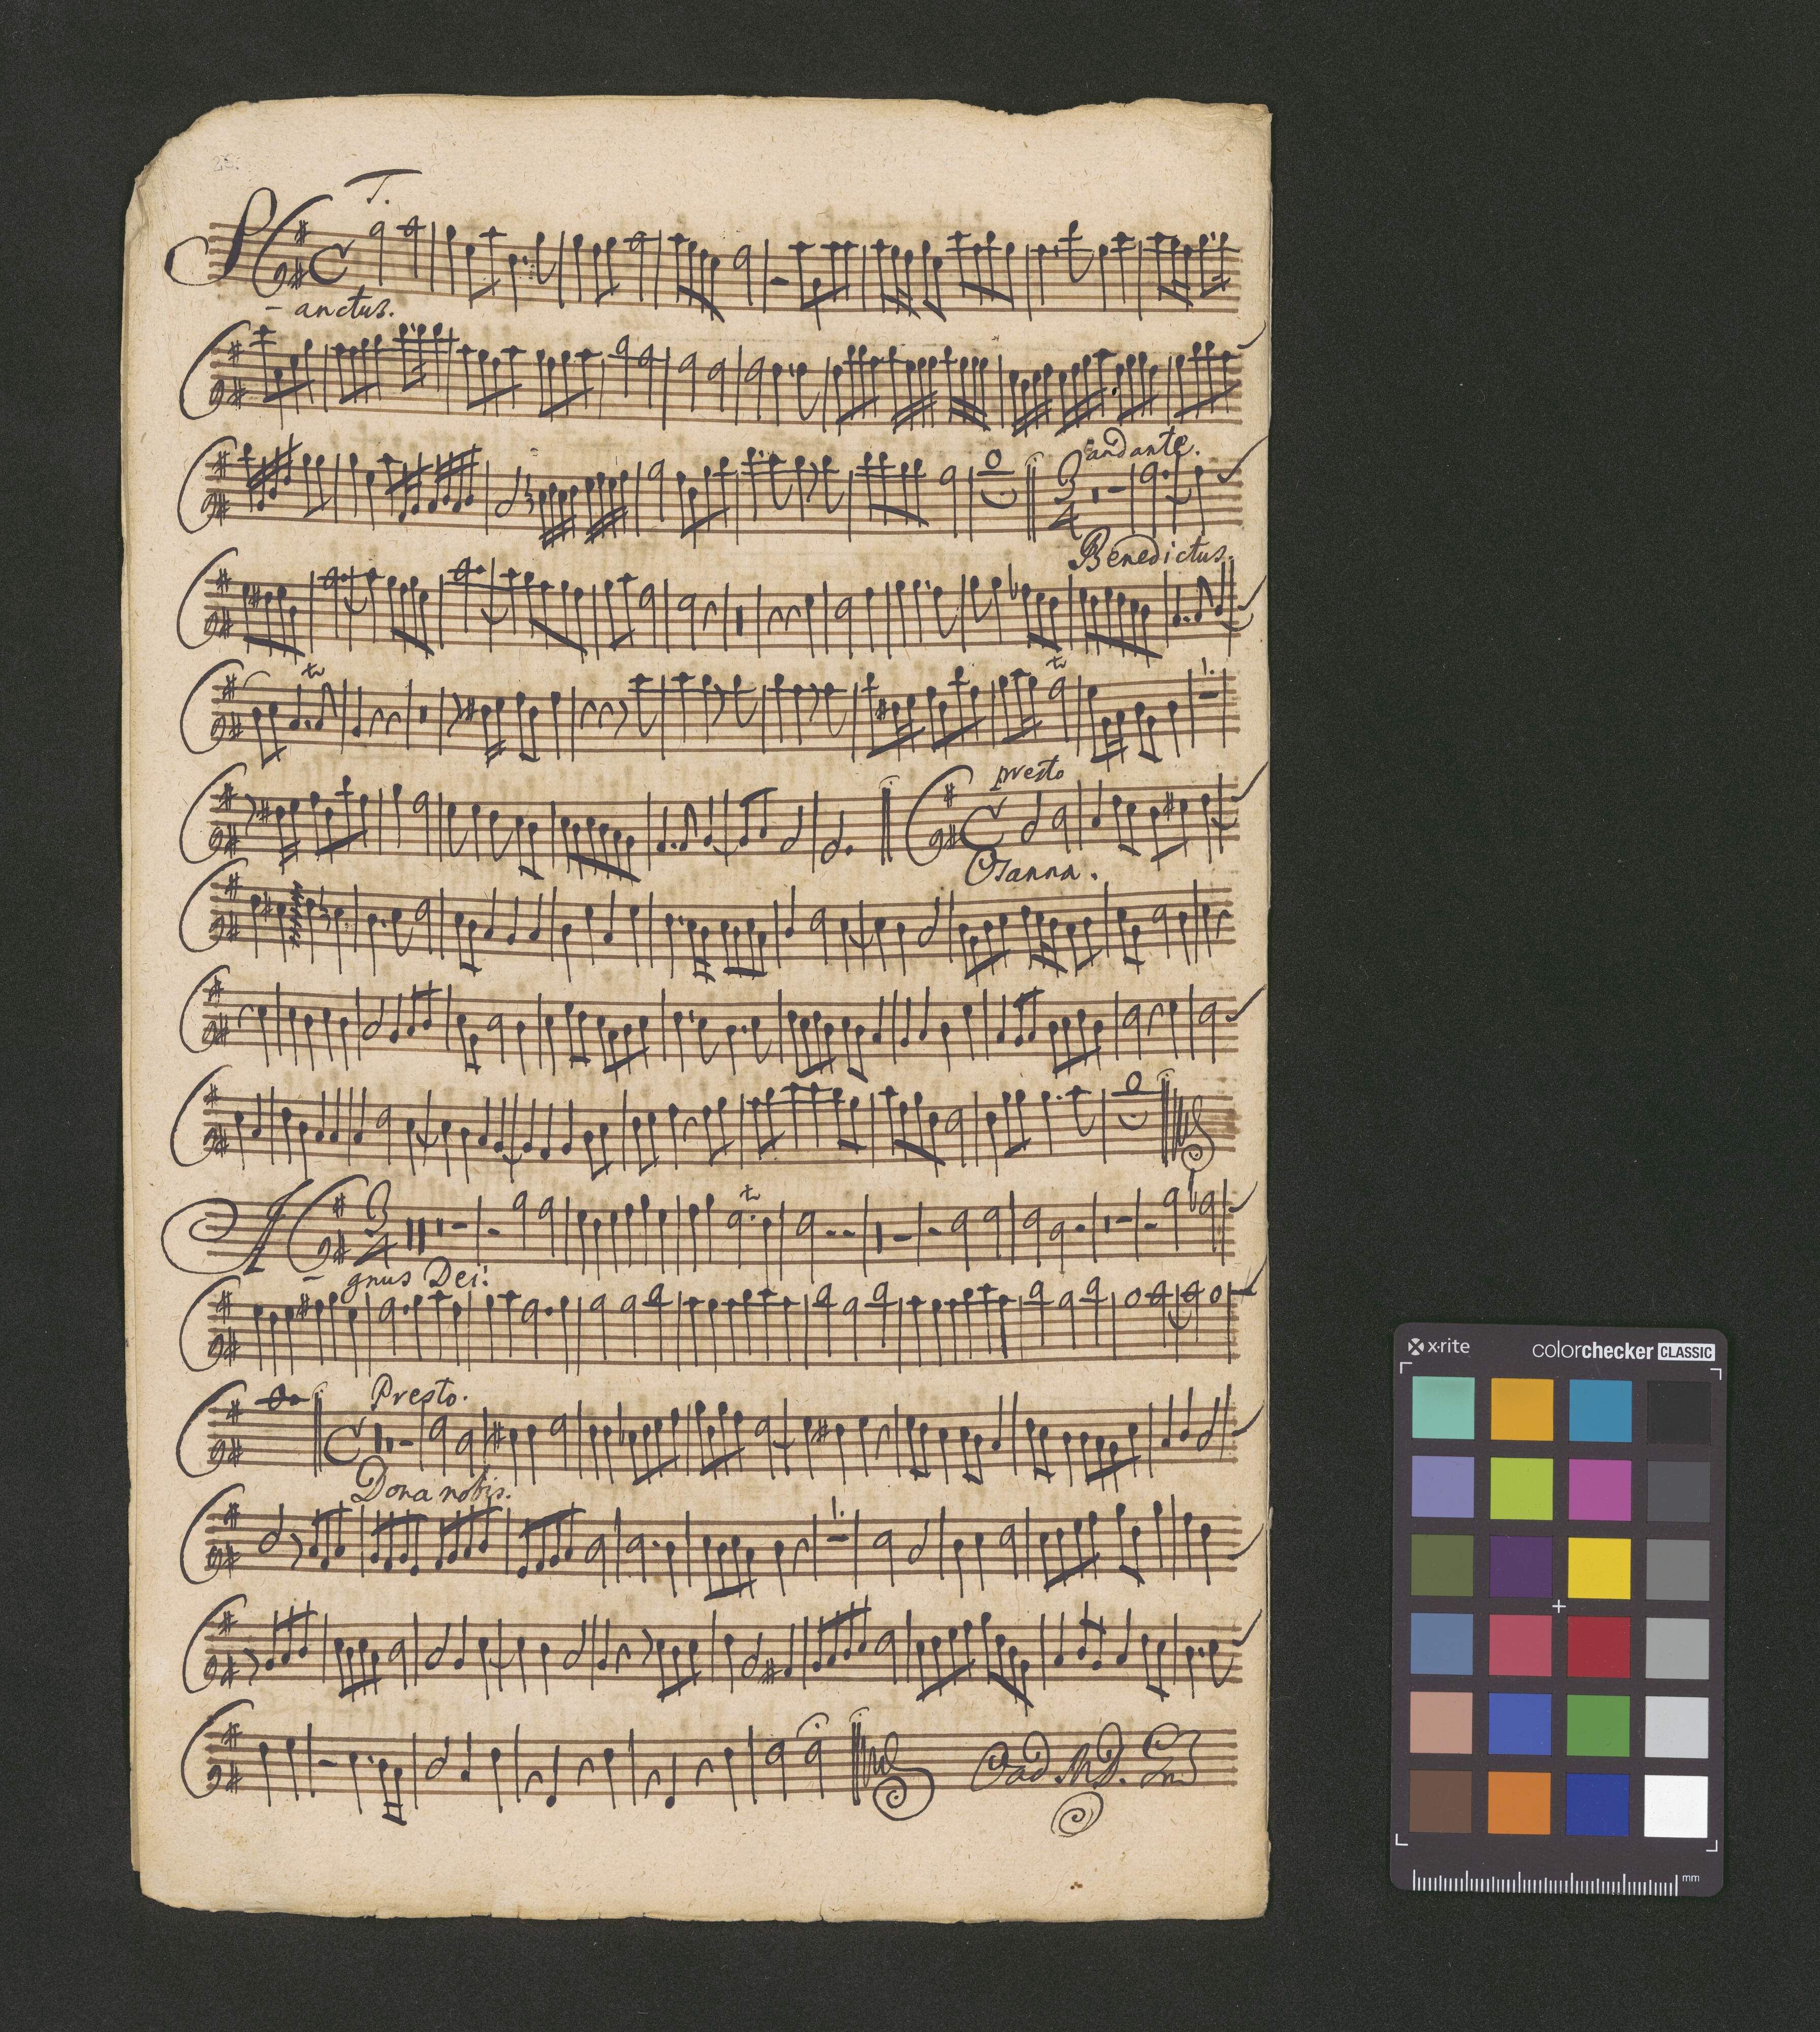 T.
S
- anctus.
andante.
3
4
Benedictus.
tr
tr
presto
Osanna.
A
3
4
tr
- gnus Dei:
Presto.
Dona nobis.
x·rite
colorchecker CLASSIC
mm